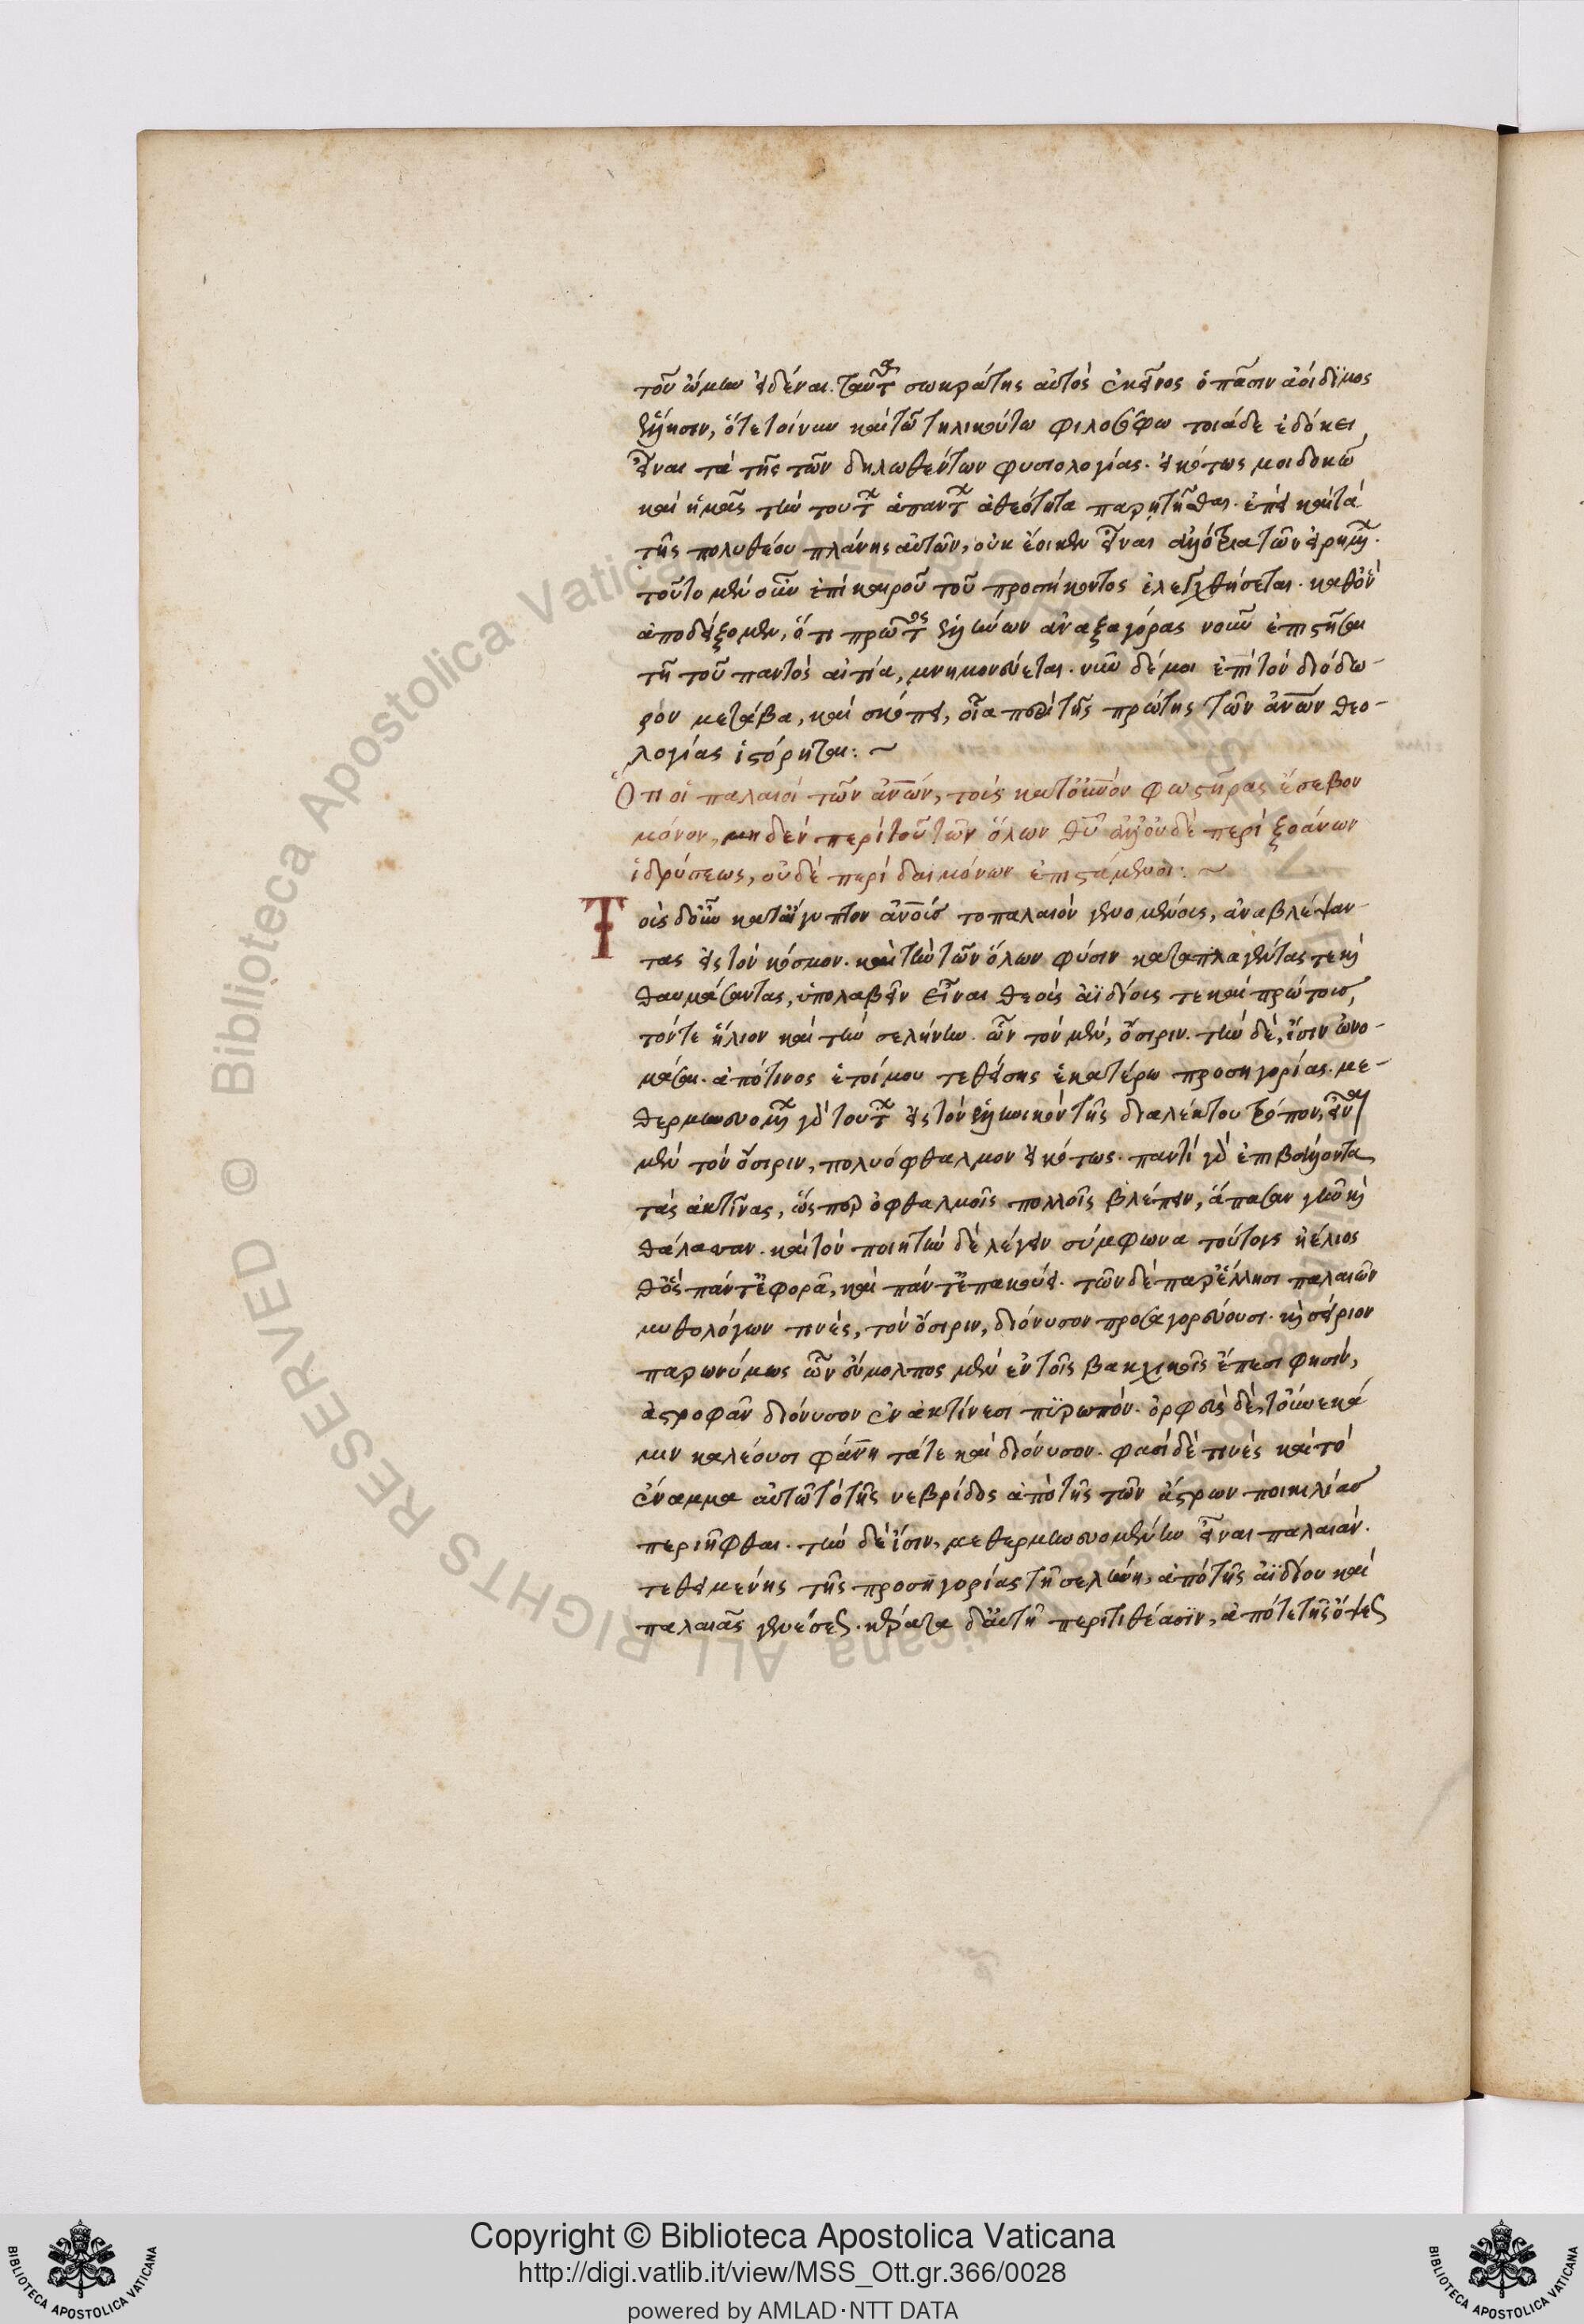 τοῦ ὤμην εἰδέναι. ταῦτα σωκράτης αὐτὸς ἐκεῖνος ὁ πᾶσιν ἀοίδιμος
ὅτε τοίνυν καὶ τῶ τηλικούτω φιλοσόφω τοιάδε ἐδόκει
εἶναι τὰ τῆς τῶν δηλωθέντων φυσιολογίας. εἰκότως μοι δοκῶ
καὶ ἡμᾶς τὴν τούτων ἁπάντων ἀθεότητα παρητῆσθαι. ἐπεὶ καὶ τὰ
τῆς πολυθέου πλάνης αὐτῶν, οὐκ ἔοικεν εἶναι ἀλλότρια τῶν εἰρημένων.
τοῦτο μὲν οὖν ἐπὶ καιροῦ τοῦ προσήκοντος ἐλεγχθήσεται. καθ' ὃν
ἀποδείξομεν, ὅτι πρῶτος ἑλλήνων ἀναξαγόρας νοῦν ἐπιστῆσαι
τῆ τοῦ παντὸς αἰτία, μνημονεύεται. νῦν δέ μοι ἐπὶ τὸν διόδω-
ρον μετάβα, καὶ σκόπει, οἷα περὶ τῆς πρώτης τῶν ἀνων θεο-
λογίας ἱστόρηται: ~
Ὅτι οἱ παλαιοὶ τῶν ἀνων, τοὺς κατ' οὐνον φωστῆρας ἔσεβον
μόνον, μηδὲν περὶ τοῦ τῶν ὅλων θυ ἀλλ' οὐδὲ περὶ ξοάνων
ἱδρύσεως, οὐδὲ περὶ δαιμόνων ἐπιστάμενοι: ~
Τοὺς δ' οὖν κατ' αἴγυπτον ἀνους τὸ παλαιὸν γενομένους, ἀναβλέψαν-
τας εἰς τὸν κόσμον. καὶ τὴν τῶν ὅλων φύσιν καταπλαγέντας τε καὶ
θαυμάσαντας, ὑπολαβεῖν εἶναι θεοὺς ἀϊδίους τε καὶ πρώτους,
τόν τε ἥλιον καὶ τὴν σελήνην. ὧν τὸν μὲν, ὄσιριν. τὴν δὲ, ἴσιν ὠνο-
μάσαι. ἀπό τινος ἐτοίμου τεθείσης ἑκατέρω προσηγορίας. με-
θερμηνευομένων γὰρ τούτων εἰς τὸν ἑλληνικὸν τῆς διαλέκτου τρόπον, εἶναι
μὲν τὸν ὄσιριν, πολυόφθαλμον εἰκότως. παντὶ γὰρ ἐπιβάλλοντα
τὰς ἀκτῖνας, ὥσπερ ὀφθαλμοῖς πολλοῖς βλέπειν, ἅπασαν γῆν καὶ
θάλασσαν. καὶ τὸν ποιητὴν δὲ λέγειν σύμφωνα τούτοις ἠέλιος
θ' ὃς πάντ' ἐφορᾶ, καὶ πάντ' ἐπακούει. τῶν δὲ παρ' ἕλλησι παλαιῶν
μυθολόγων τινὲς, τὸν ὄσιριν, διόνυσον προσαγορεύουσι. καὶ σείριον
παρωνύμως ὧν εὔμολπος μὲν ἐν τοῖς βακχικοῖς ἔπεσι φησὶν,
ἀστροφαῆ διόνυσον ἐν ἀκτίνεσι πυρωπόν. ὀρφεὺς δὲ, τοὔνεκά
μιν καλέουσι φάνητά τε καὶ διόνυσον. φασὶ δὲ τινὲς καὶ τὸ
ἔναμμα αὐτῶ τὸ τῆς νεβρίδος ἀπὸ τῆς τῶν ἄστρων ποικιλίας
περιῆφθαι. τὴν δὲ ἴσιν, μεθερμηνευομένην εἶναι παλαιάν.
τεθειμένης τῆς προσηγορίας τῆ σελήνη, ἀπὸ τῆς ἀϊδίου καὶ
παλαιᾶς γενέσεως. κέρατα δ' αὐτῆ περιτιθέασϊν, ἀπό τε τῆς ὄψεως
Copyright © Biblioteca Apostolica Vaticana
http://digi.vatlib.it/view/MSS_Ott.gr.366/0028
powered by AMLAD·NTT DATA